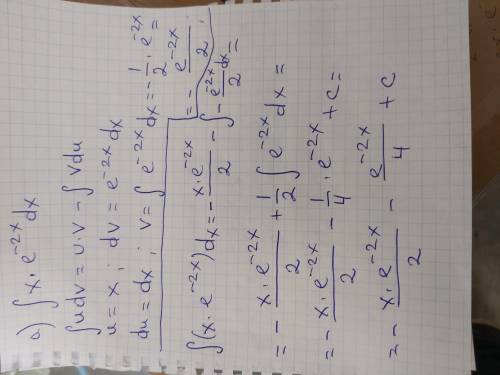 a) ∫ x · e^{-2x} dx
∫ u dv = u · v - ∫ v du
u = x ; dv = e^{-2x} dx
du = dx ; v = ∫ e^{-2x} dx = -\frac{1}{2} · e^{-2x} =
= -\frac{e^{-2x}}{2} ;
∫ (x · e^{-2x}) dx = -\frac{x · e^{-2x}}{2} - ∫ -\frac{e^{-2x} dx}{2} =
= -\frac{x · e^{-2x}}{2} + \frac{1}{2} ∫ e^{-2x} dx =
= -\frac{x · e^{-2x}}{2} - \frac{1}{4} · e^{-2x} + c =
= -\frac{x · e^{-2x}}{2} - \frac{e^{-2x}}{4} + c